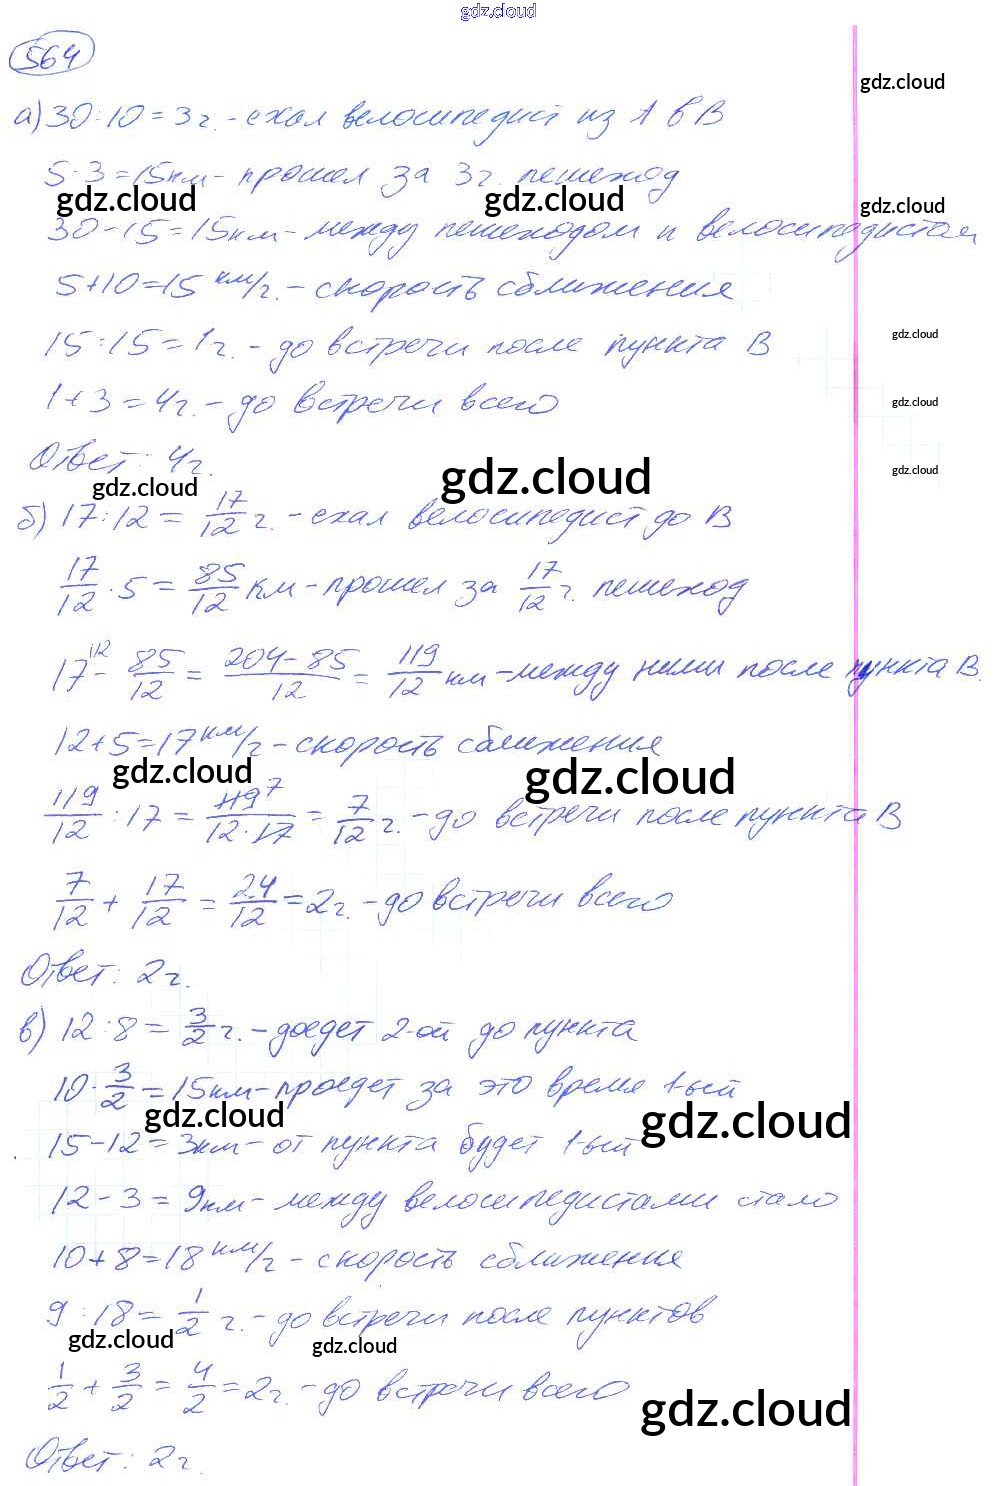 gdz.cloud
564
gdz.cloud
а) 30 : 10 = 3 ч. - ехал велосипедист из А в В
5 · 3 = 15 км - прошел за 3 ч. пешеход
gdz.cloud gdz.cloud gdz.cloud
30 - 15 = 15 км - между пешеходом и велосипедистом
5 + 10 = 15 км/ч. - скорость сближения
gdz.cloud
15 : 15 = 1 ч. - до встречи после пункта В
gdz.cloud
1 + 3 = 4 ч. - до встречи всего
Ответ: 4 ч.
gdz.cloud gdz.cloud gdz.cloud
б) 17 : 12 = 17/12 ч. - ехал велосипедист до В
17/12 · 5 = 85/12 км - прошел за 17/12 ч. пешеход
17 \12 - 85/12 = 204 - 85/12 = 119/12 км - между ними после пункта В.
12 + 5 = 17 км/ч - скорость сближения
gdz.cloud gdz.cloud
119/12 : 17 = 119 7/12 · 17 = 7/12 ч. - до встречи после пункта В
7/12 + 17/12 = 24/12 = 2 ч. - до встречи всего
Ответ: 2 ч.
в) 12 : 8 = 3/2 ч. - доедет 2-ой до пункта
10 · 3/2 = 15 км - проедет за это время 1-ый
gdz.cloud gdz.cloud
15 - 12 = 3 км - от пункта будет 1-ый
12 - 3 = 9 км - между велосипедистами стало
10 + 8 = 18 км/ч - скорость сближения
9 : 18 = 1/2 ч. - до встречи после пунктов
gdz.cloud gdz.cloud
1/2 + 3/2 = 4/2 = 2 ч. - до встречи всего
gdz.cloud
Ответ: 2 ч.